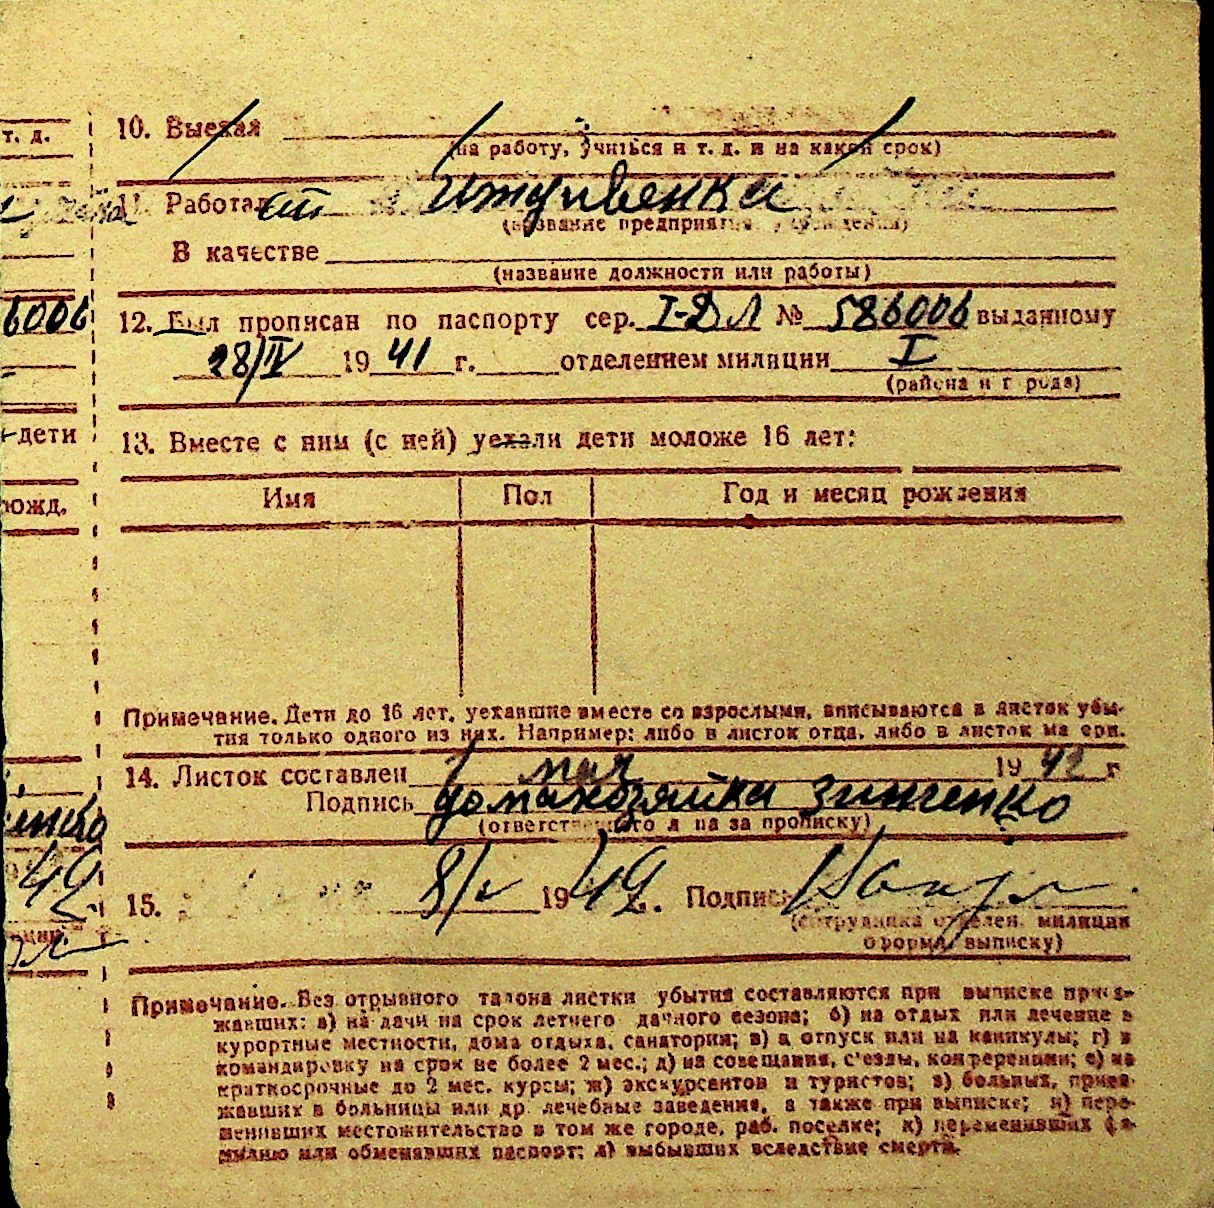 т. д.
10. Выехал
(на работу, учиться и т. д. и на какой срок)
11. Работал иждивенка
(название предприятия, учреждения)
В качестве
(название должности или работы)
6006 12. Был прописан по паспорту сер. I-ДЛ № 586006 выданному
28/IV 1941 г. отделением милиции I
(района и города)
дети 13. Вместе с ним (с ней) уехали дети моложе 16 лет:
рожд. Имя Пол Год и месяц рождения
Примечание. Дети до 16 лет, уехавшие вместе со взрослыми, вписываются в листок убы-
тия только одного из них. Например: либо в листок отца, либо в листок матери.
14. Листок составлен 7 мая 1942 г
Подпись домохозяйка Зинченко
(ответственного лица за прописку)
42 15. 8/V 1942 г. Подпись
(сотрудника отделен. милиции
оформл. выписку)
Примечание. Без отрывного талона листки убытия составляются при выписке приез-
жавших: а) на дачи на срок летнего дачного сезона; б) на отдых или лечение в
курортные местности, дома отдыха, санатории; в) в отпуск или на каникулы; г) в
командировку на срок не более 2 мес.; д) на совещания, с'езды, конференции; е) на
краткосрочные до 2 мес. курсы; ж) экскурсантов и туристов; з) больных, приез-
жавших в больницы или др. лечебные заведения, а также при выписке; и) пере-
менивших местожительство в том же городе, раб. поселке; к) переменивших фа-
милию или обменявших паспорт; л) выбывших вследствие смерти.